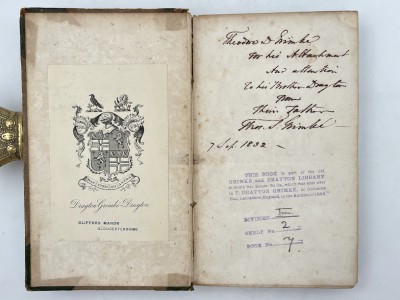 Drayton Grimke-Drayton
CLIFFORD MANOR
GLOUCESTERSHIRE
Theodore D Grimke
for his Attachment
And attention
to his Brother Drayton
from
Their Father
Thos. S. Grimké
7 Sep 1832
THIS BOOK is part of the old
GRIMKE and DRAYTON LIBRARY
DIVISION III
SHELF No 2
BOOK No 7